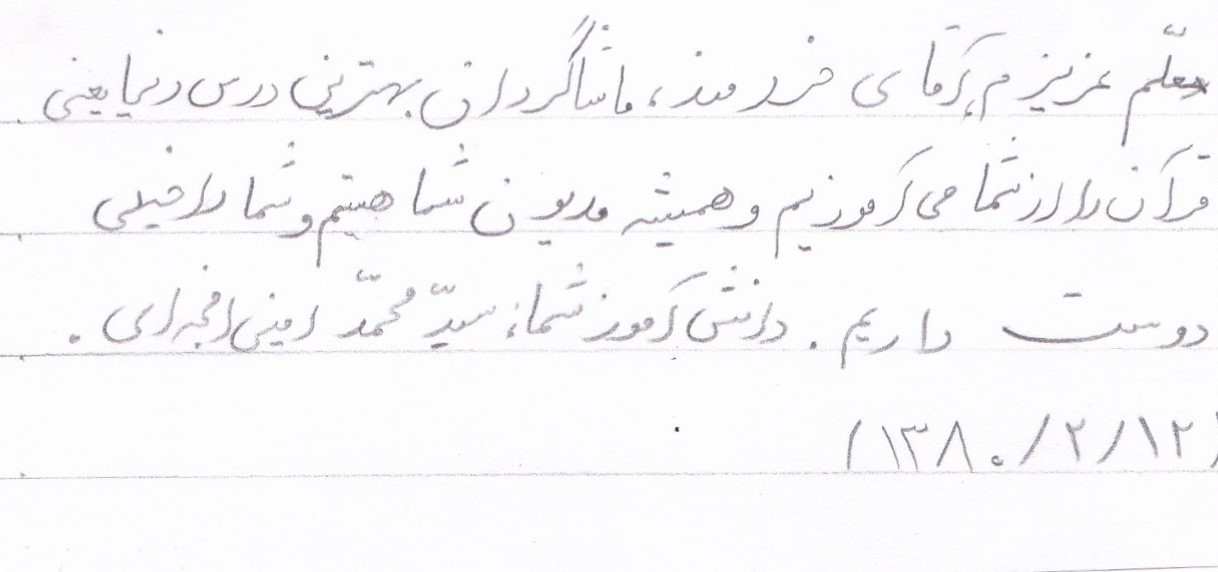 معلّم عزیزم آقای خردمند، ما شاگردان بهترین درس دنیا یعنی
قرآن را از شما می آموزیم و همیشه مدیون شما هستیم و شما را خیلی
دوست داریم. دانش آموز شما: سیّد محمّد امینی
(۱۳۸۰/۲/۱۲)